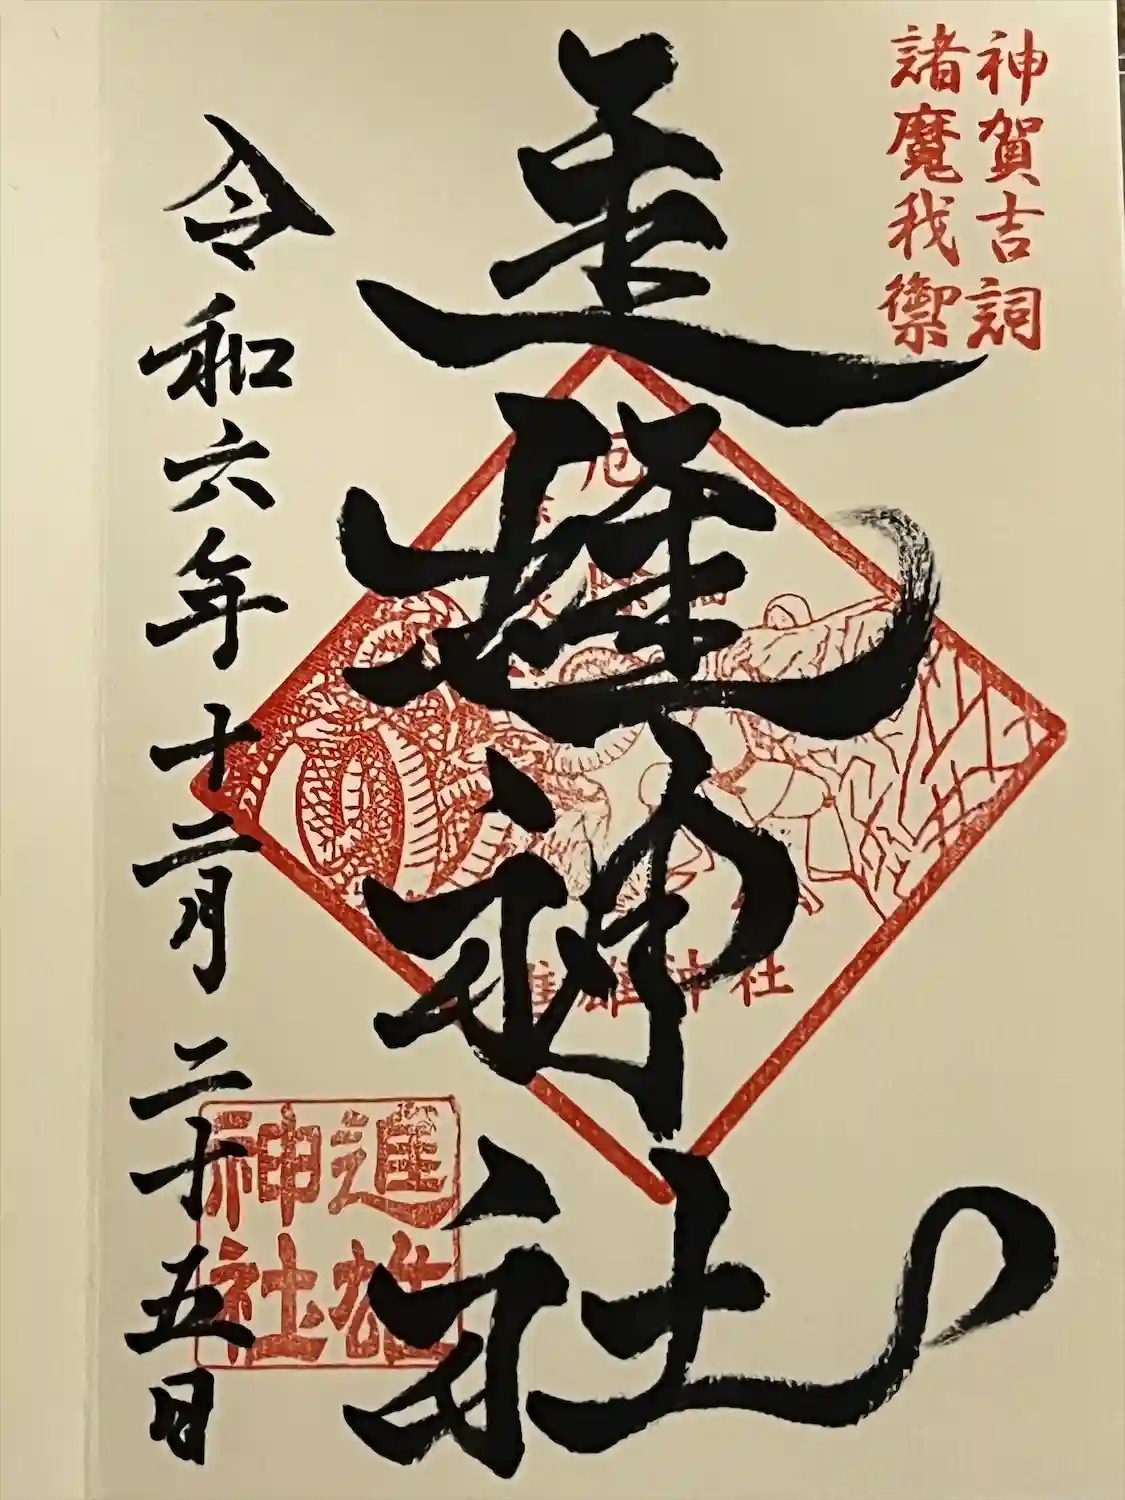 神賀吉詞
諸魔我禦
進雄神社
厄
除
進雄神社
令和六年十二月二十五日
進雄
神社